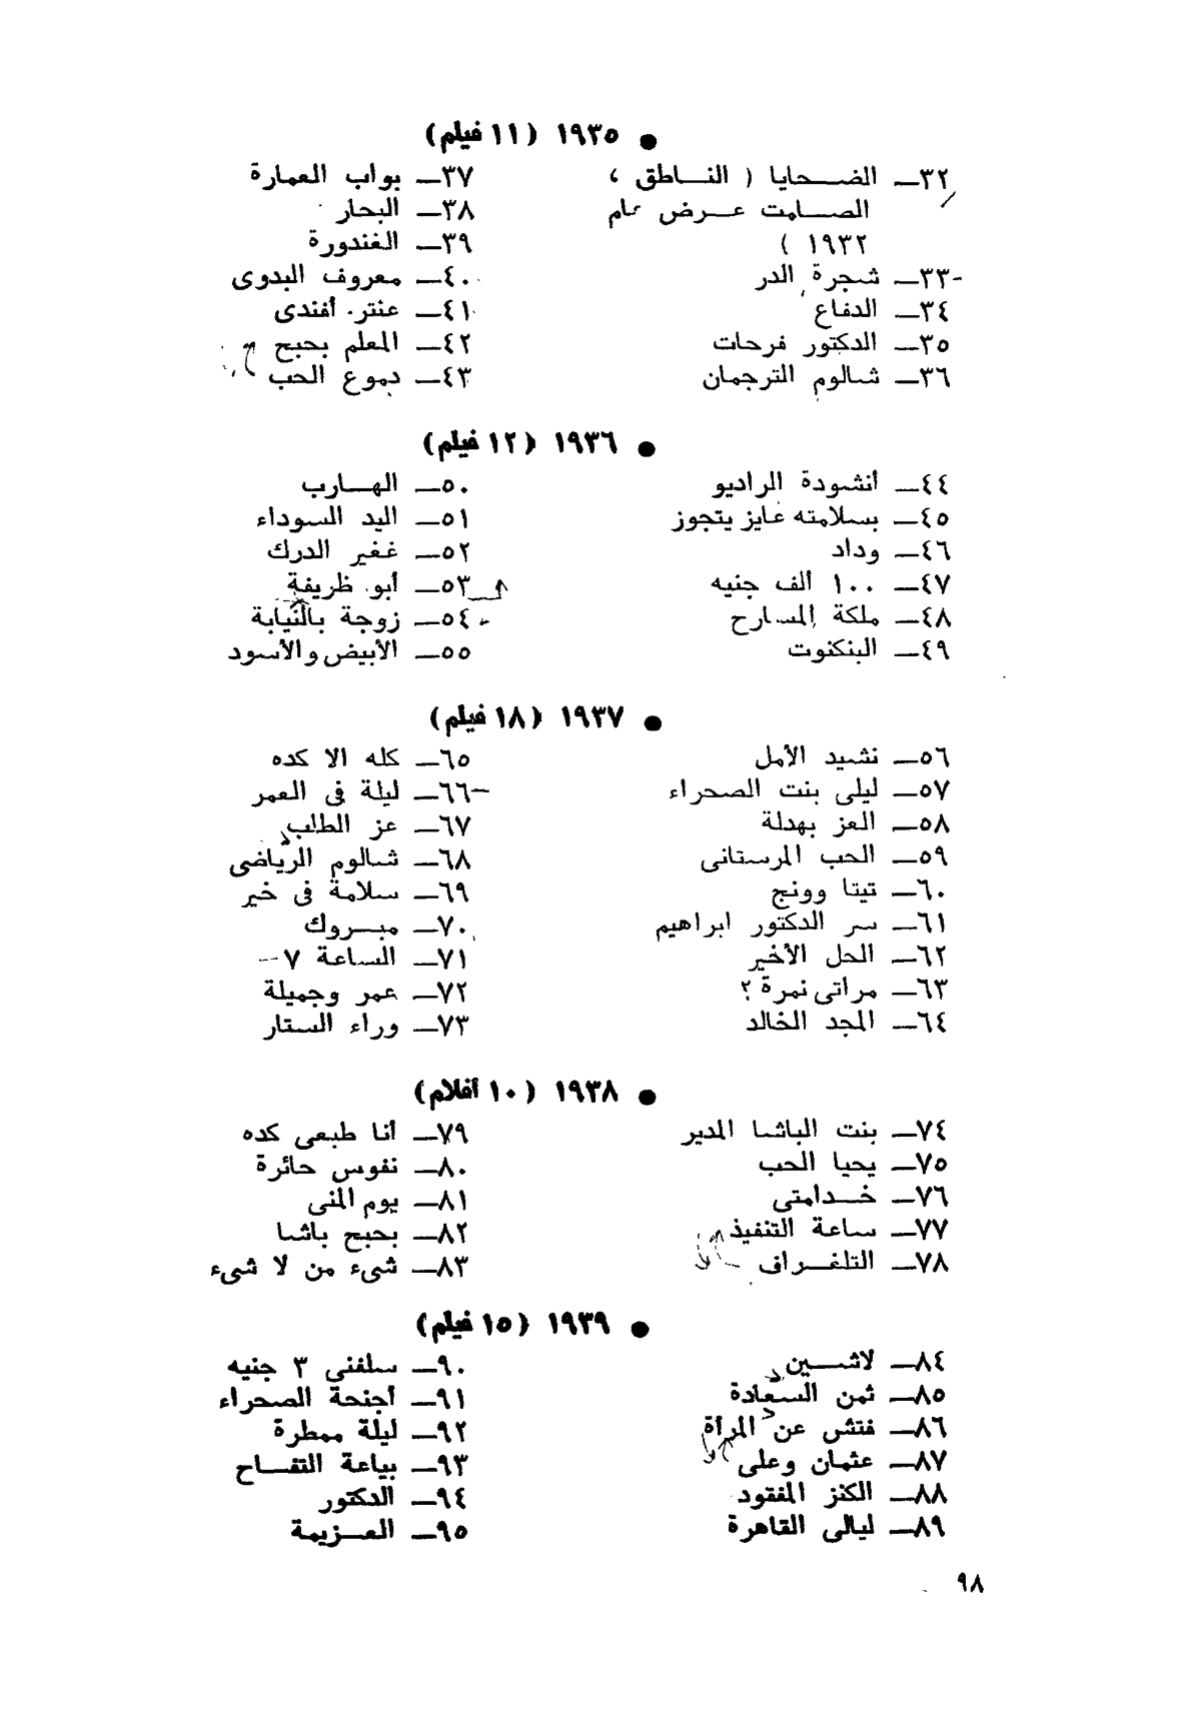 ● ١٩٣٥ (١١ فيلم)
٣٢ــ الضــحايا ( النــاطق ،
الصــامت عــرض عام
١٩٣٢ )
٣٣ــ شجرة الدر
٣٤ــ الدفاع
٣٥ــ الدكتور فرحات
٣٦ــ شالوم الترجمان
٣٧ــ بواب العمارة
٣٨ــ البحار
٣٩ــ الغندورة
٤٠ــ معروف البدوى
٤١ــ عنتر أفندى
٤٢ــ المعلم بحبح
٤٣ــ دموع الحب
● ١٩٣٦ (١٢ فيلم)
٤٤ــ أنشودة الراديو
٤٥ــ بسلامته عايز يتجوز
٤٦ــ وداد
٤٧ــ ١٠٠ ألف جنيه
٤٨ــ ملكة المسارح
٤٩ــ البنكنوت
٥٠ــ الهــارب
٥١ــ اليد السوداء
٥٢ــ غفير الدرك
٥٣ــ أبو ظريفة
٥٤ــ زوجة بالنيابة
٥٥ــ الأبيض والأسود
● ١٩٣٧ (١٨ فيلم)
٥٦ــ نشيد الأمل
٥٧ــ ليلى بنت الصحراء
٥٨ــ العز بهدلة
٥٩ــ الحب المرستانى
٦٠ــ تيتا وونج
٦١ــ سر الدكتور ابراهيم
٦٢ــ الحل الأخير
٦٣ــ مراتى نمرة ٢
٦٤ــ المجد الخالد
٦٥ــ كله الا كده
٦٦ــ ليلة فى العمر
٦٧ــ عز الطلب
٦٨ــ شالوم الرياضى
٦٩ــ سلامة فى خير
٧٠ــ مبــروك
٧١ــ الساعة ٧
٧٢ــ عمر وجميلة
٧٣ــ وراء الستار
● ١٩٣٨ (١٠ أفلام)
٧٤ــ بنت الباشا المدير
٧٥ــ يحيا الحب
٧٦ــ خــدامتى
٧٧ــ ساعة التنفيذ
٧٨ــ التلغــراف
٧٩ــ أنا طبعى كده
٨٠ــ نفوس حائرة
٨١ــ يوم المنى
٨٢ــ بحبح باشا
٨٣ــ شىء من لا شىء
● ١٩٣٩ (١٥ فيلم)
٨٤ــ لاشــين
٨٥ــ ثمن السعادة
٨٦ــ فتش عن المرأة
٨٧ــ عثمان وعلى
٨٨ــ الكنز المفقود
٨٩ــ ليالى القاهرة
٩٠ــ سلفنى ٣ جنيه
٩١ــ أجنحة الصحراء
٩٢ــ ليلة ممطرة
٩٣ــ بياعة التفــاح
٩٤ــ الدكتور
٩٥ــ العــزيمة
٩٨